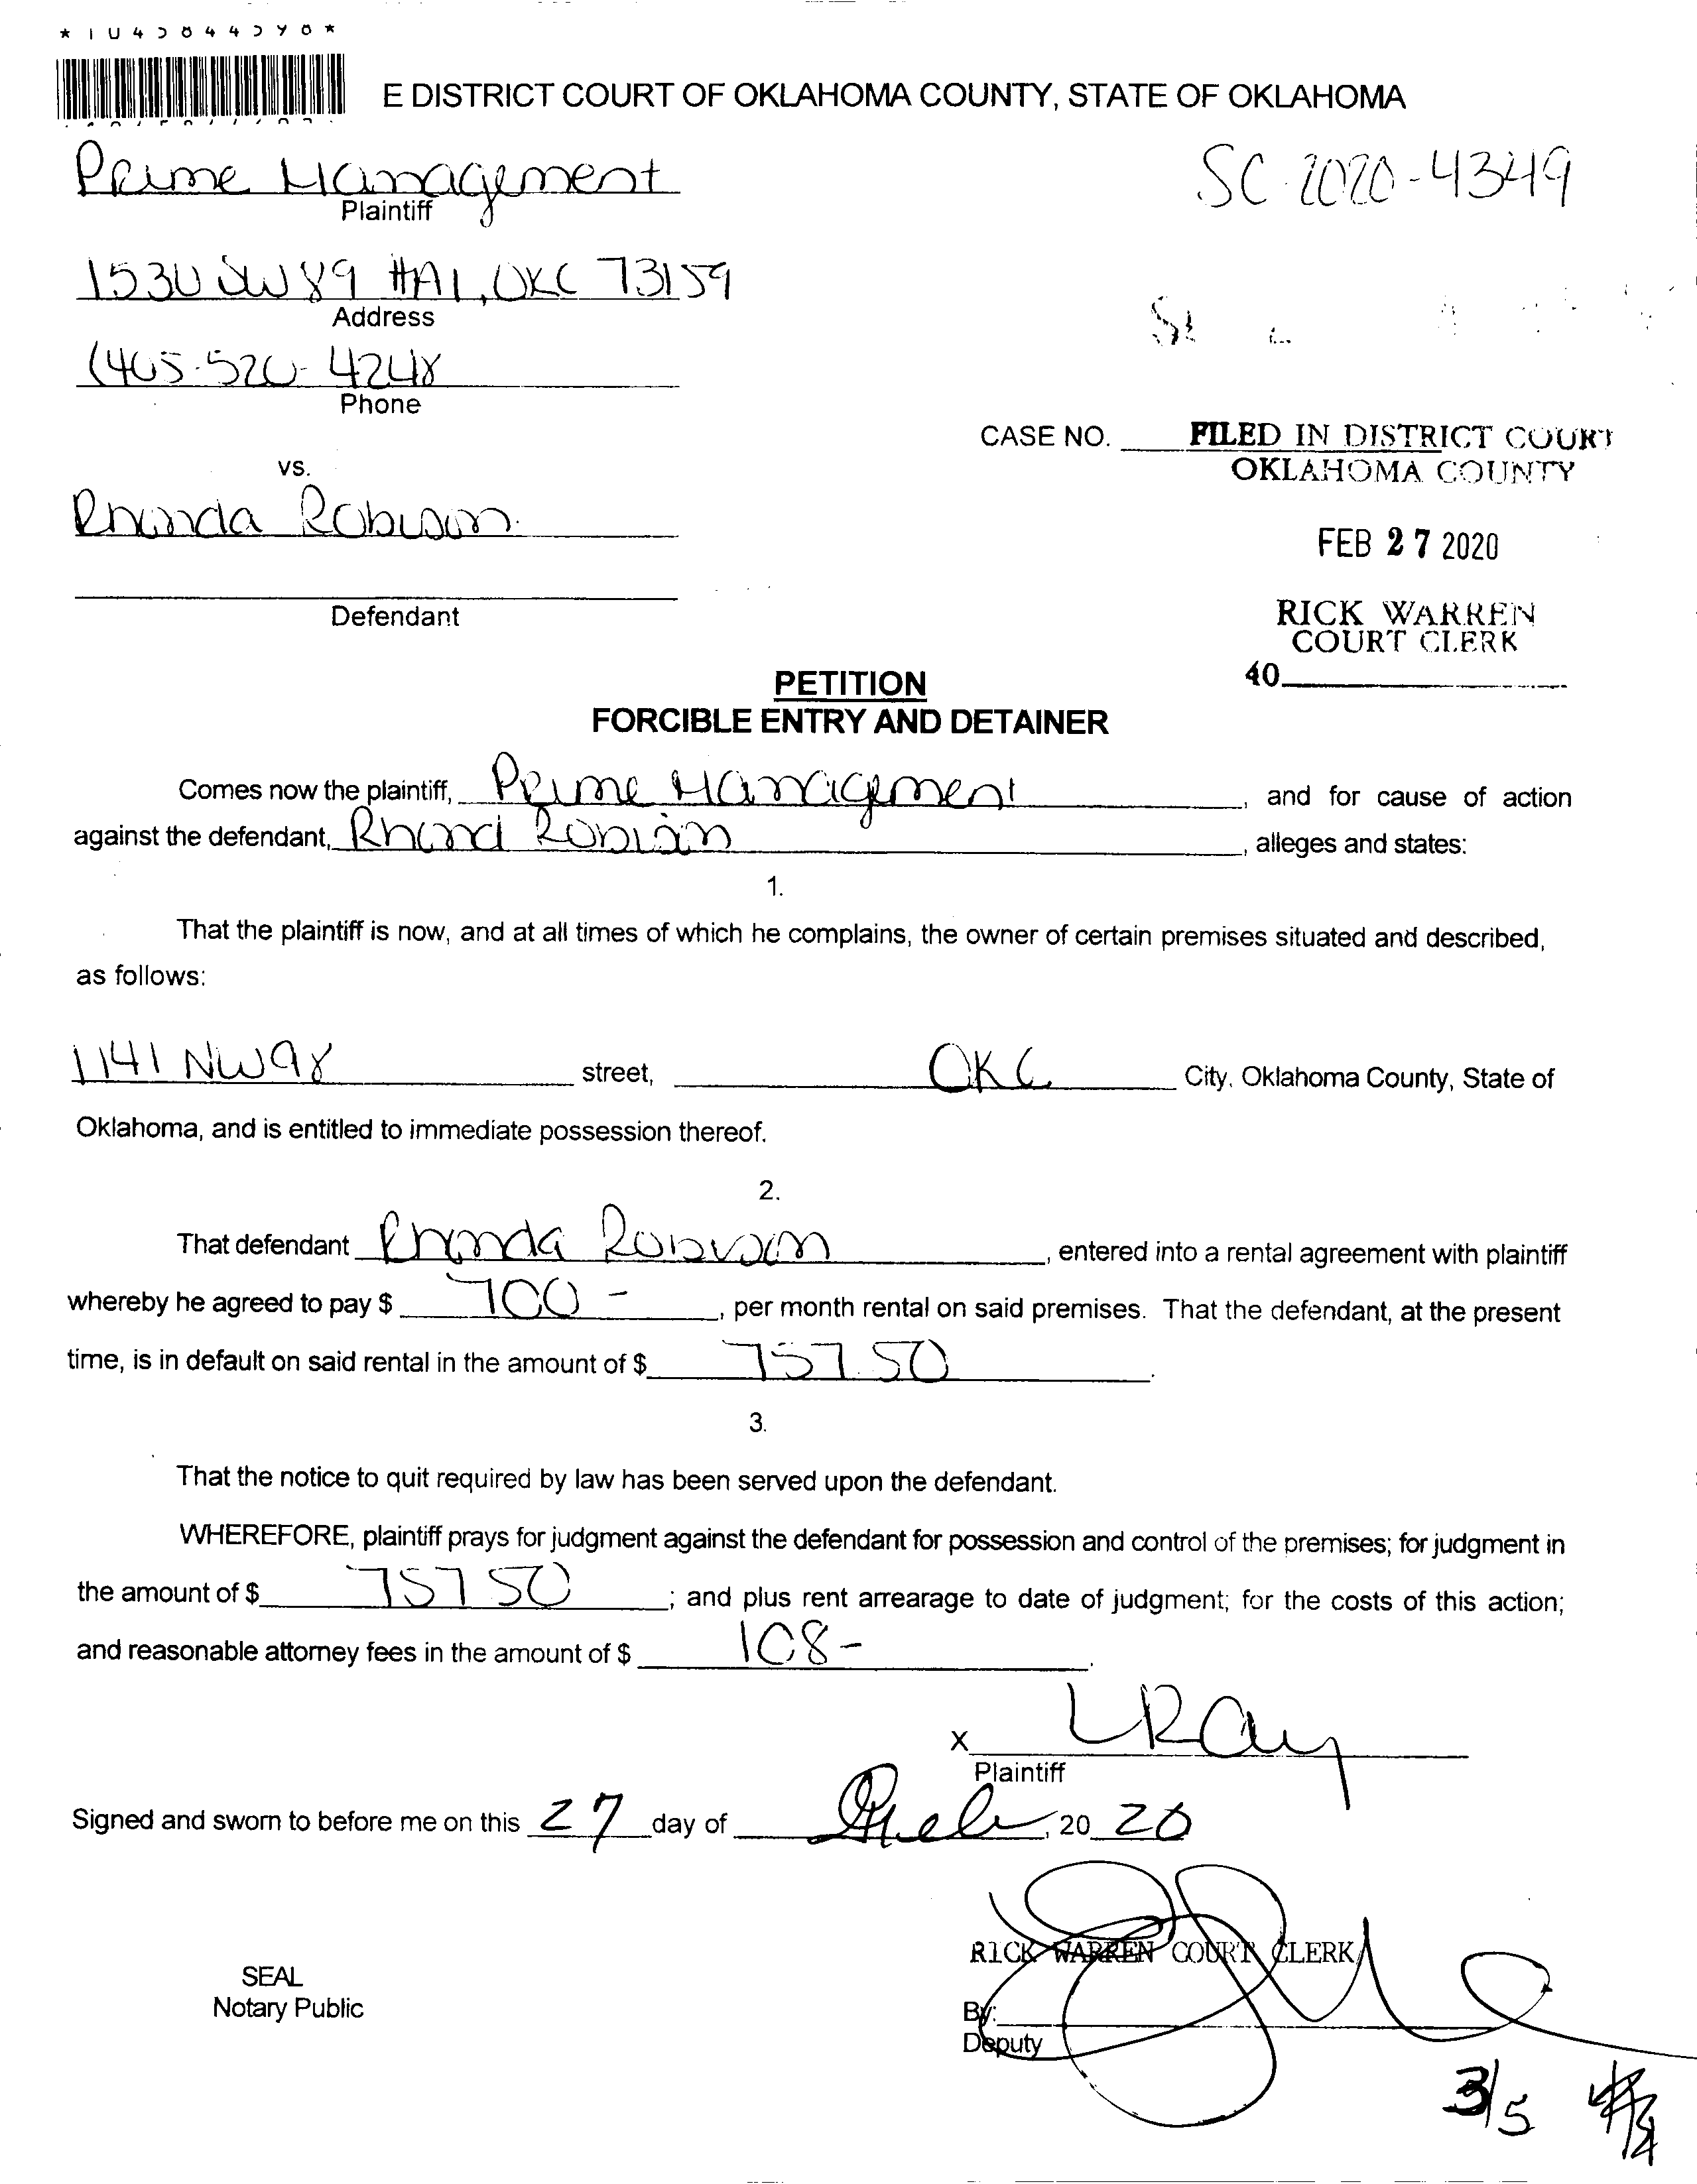 E DISTRICT COURT OF OKLAHOMA COUNTY, STATE OF OKLAHOMA
Prime Management
Plaintiff
SC-2020-4349
1530 SW 89 #A1, OKC 73159
Address
(405-520-4248
Phone
CASE NO.
FILED IN DISTRICT COURT
OKLAHOMA COUNTY
vs.
Rhonda Robison
FEB 27 2020
Defendant
RICK WARREN
COURT CLERK
40
PETITION
FORCIBLE ENTRY AND DETAINER
Comes now the plaintiff, Prime Management, and for cause of action
against the defendant, Rhond Robison, alleges and states:
1.
That the plaintiff is now, and at all times of which he complains, the owner of certain premises situated and described,
as follows:
1141 NW 98 street, OKC City, Oklahoma County, State of
Oklahoma, and is entitled to immediate possession thereof.
2.
That defendant Rhonda Robison, entered into a rental agreement with plaintiff
whereby he agreed to pay $ 700 -, per month rental on said premises. That the defendant, at the present
time, is in default on said rental in the amount of $ 757.50.
3.
That the notice to quit required by law has been served upon the defendant.
WHEREFORE, plaintiff prays for judgment against the defendant for possession and control of the premises; for judgment in
the amount of $ 757 50; and plus rent arrearage to date of judgment; for the costs of this action;
and reasonable attorney fees in the amount of $ 108-.
X LRay
Plaintiff
Signed and sworn to before me on this 27 day of Feb, 20 20
RICK WARREN COURT CLERK
SEAL
Notary Public
By:
Deputy
3/5